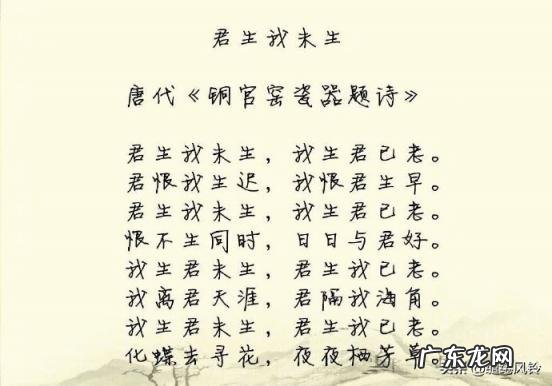 君生我未生
唐代《铜官窑瓷器题诗》
君生我未生，我生君已老。
君恨我生迟，我恨君生早。
君生我未生，我生君已老。
恨不生同时，日日与君好。
我生君未生，君生我已老。
我离君天涯，君隔我海角。
我生君未生，君生我已老。
化蝶去寻花，夜夜栖芳草。
广东龙网